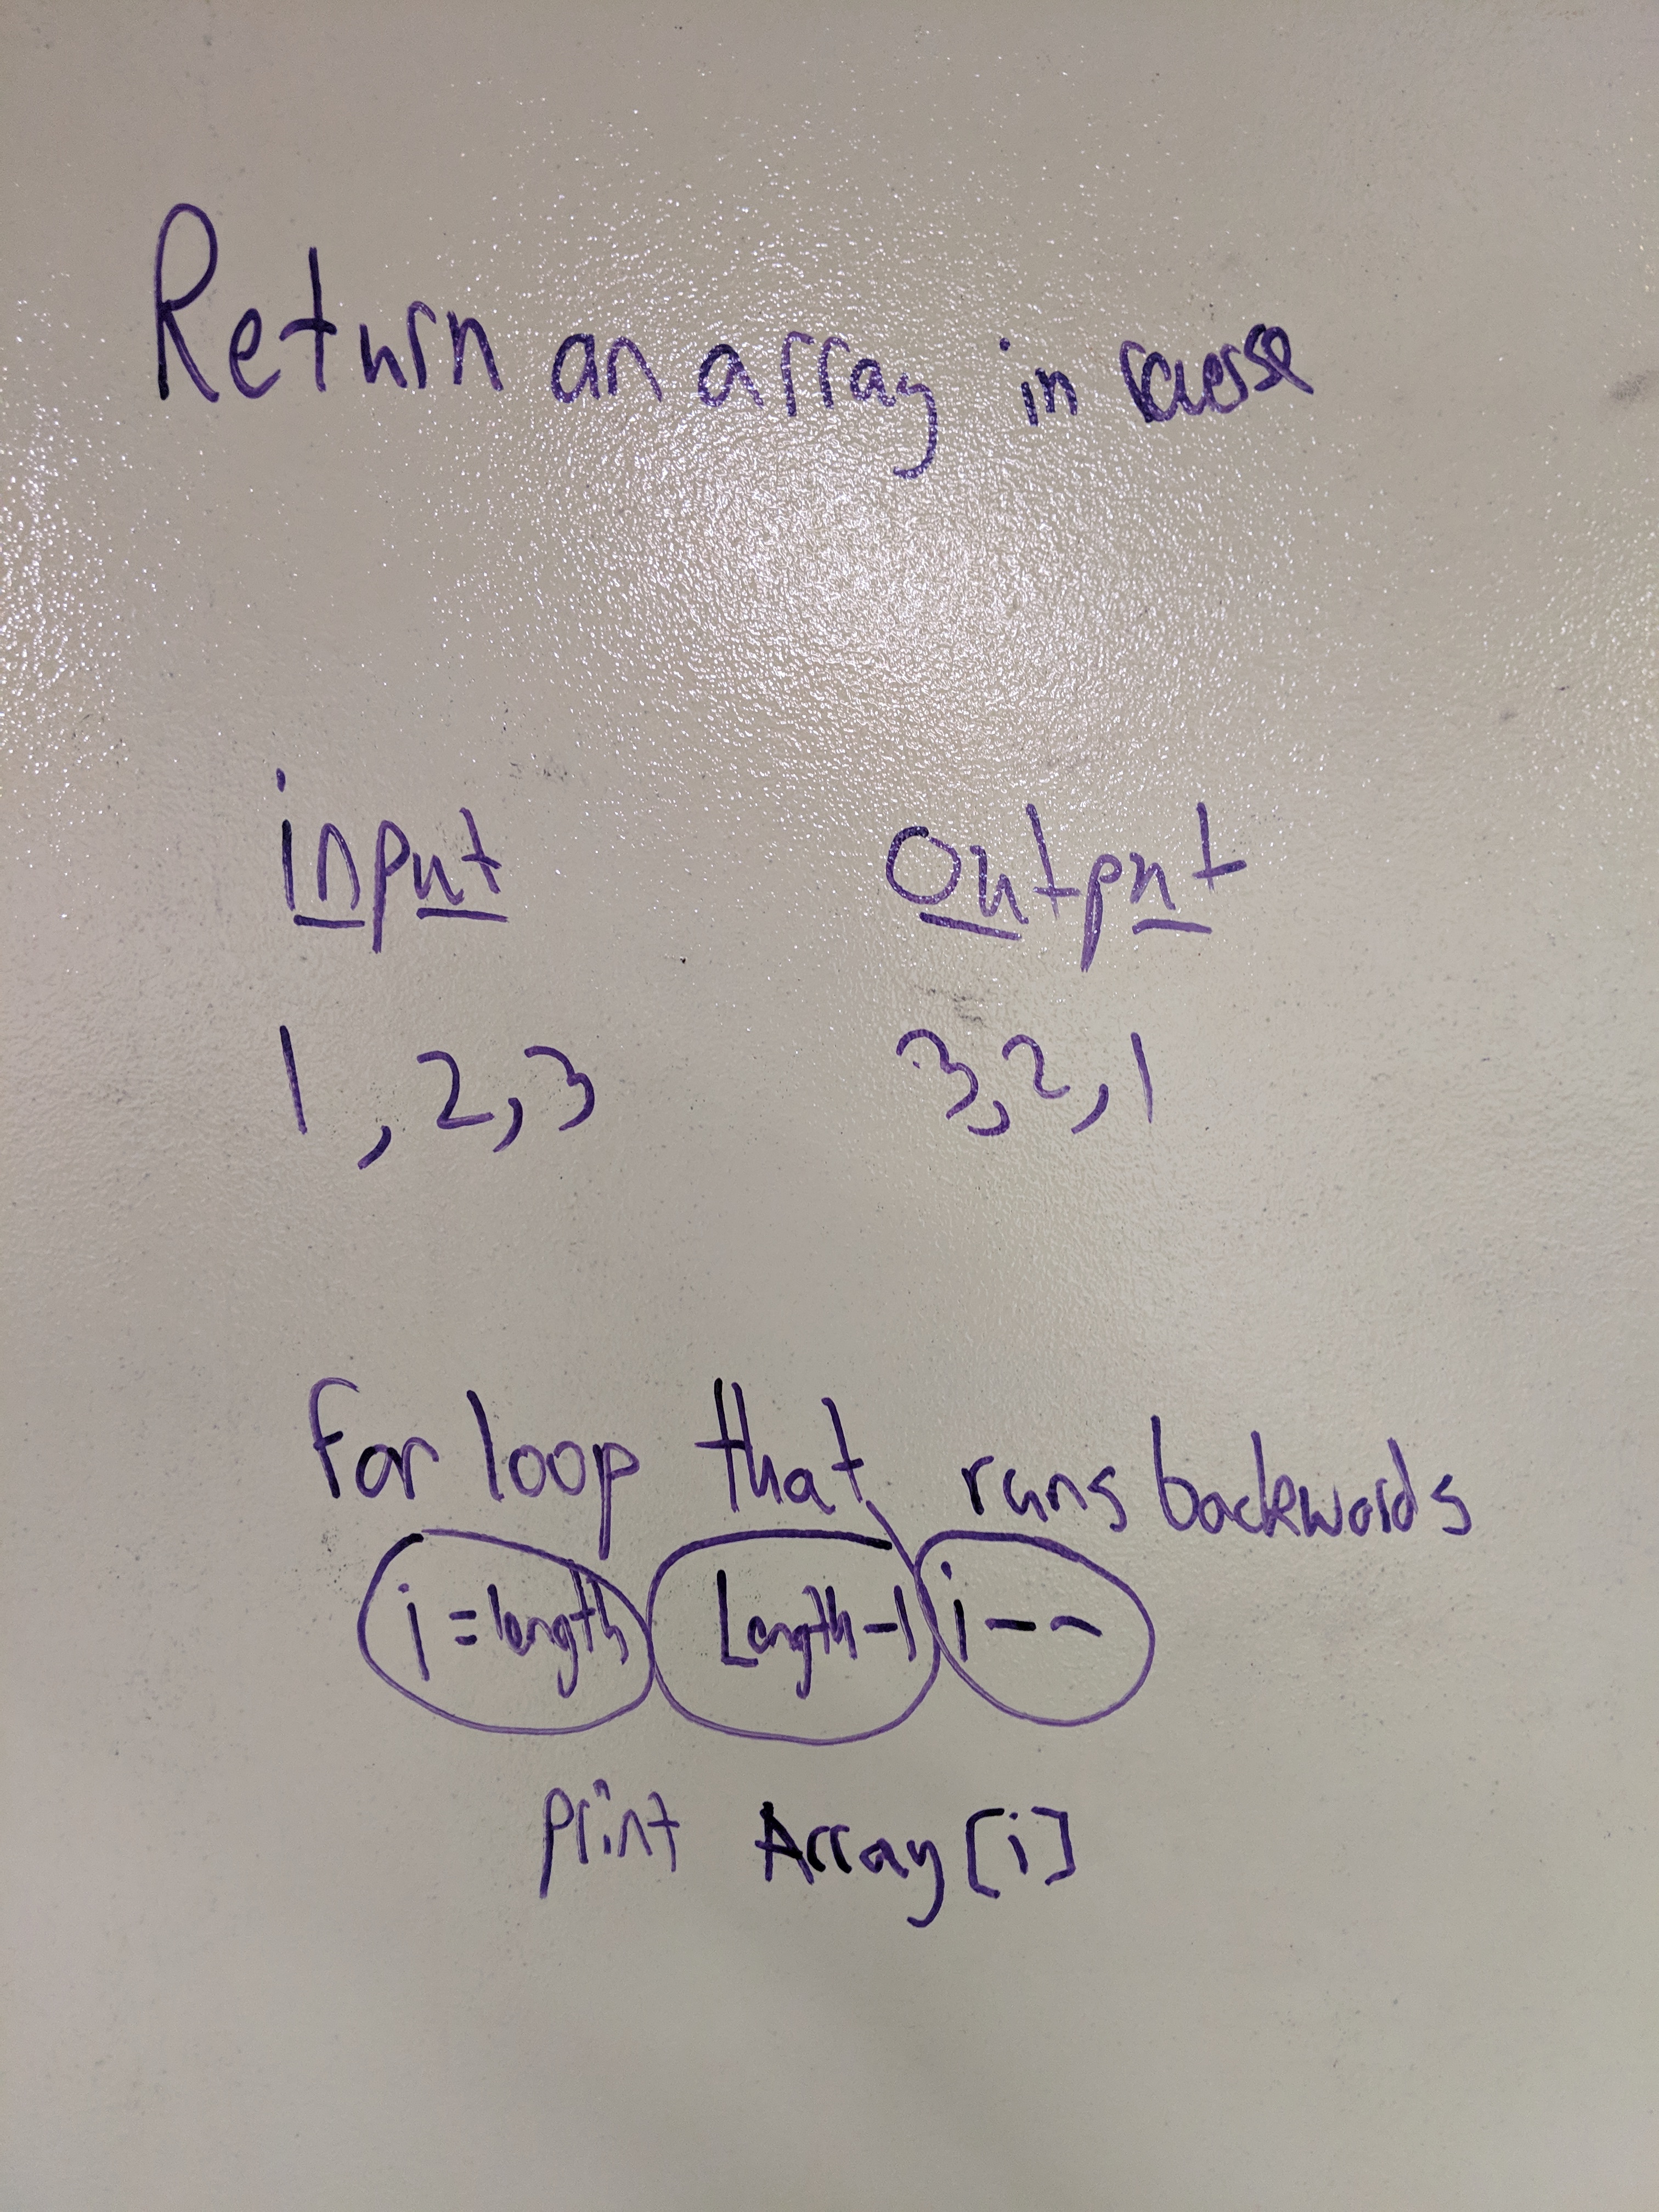 Return an array in reverse
input output
1, 2, 3 3, 2, 1
for loop that runs backwards
i = length Length - 1 i--
print Array [i]